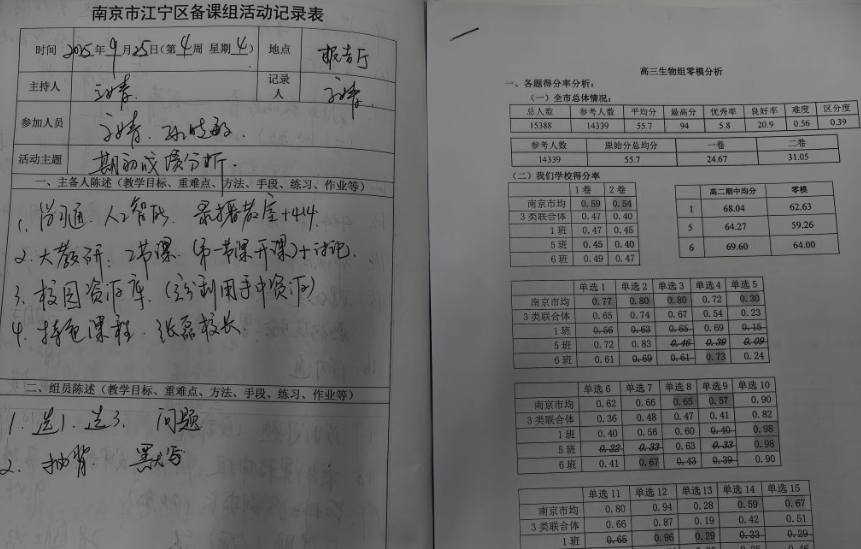 南京市江宁区备课组活动记录表
时间 2025年9月25日(第4周 星期4) 地点 报告厅
主持人 记录人
参加人员
活动主题 期初成绩分析.
一、主备人陈述(教学目标、重难点、方法、手段、练习、作业等)
1. 学习通. 人工智能. 录播教室+414
2. 大教研: 2节课 (第一节课开课)+讨论.
3. 校园资源库. (充分利用手中资源)
4. 特色课程. 张磊校长.
二、组员陈述(教学目标、重难点、方法、手段、练习、作业等)
1. 选1. 选3. 问题
2. 抽背 默写
高三生物组零模分析
一、各题得分率分析:
(一)全市总体情况:
总人数 参考人数 平均分 最高分 优秀率 良好率 难度 区分度
15388 14339 55.7 94 5.8 20.9 0.56 0.39
参考人数 原始分总均分 一卷 二卷
14339 55.7 24.67 31.05
(二)我们学校得分率
1卷 2卷
南京市均 0.59 0.54
3类联合体 0.47 0.40
1班 0.47 0.45
5班 0.45 0.40
6班 0.49 0.47
高二期中均分 零模
1 68.04 62.63
5 64.27 59.26
6 69.60 64.00
单选1 单选2 单选3 单选4 单选5
南京市均 0.77 0.80 0.80 0.72 0.30
3类联合体 0.65 0.74 0.67 0.54 0.23
1班 0.56 0.63 0.65 0.69 0.15
5班 0.72 0.83 0.46 0.39 0.09
6班 0.61 0.69 0.61 0.73 0.24
单选6 单选7 单选8 单选9 单选10
南京市均 0.62 0.66 0.65 0.57 0.90
3类联合体 0.36 0.48 0.47 0.41 0.82
1班 0.40 0.56 0.60 0.40 0.98
5班 0.22 0.33 0.63 0.33 0.98
6班 0.41 0.67 0.43 0.39 0.90
单选11 单选12 单选13 单选14 单选15
南京市均 0.80 0.94 0.28 0.59 0.67
3类联合体 0.66 0.87 0.19 0.42 0.51
1班 0.65 0.96 0.29 0.33 0.29